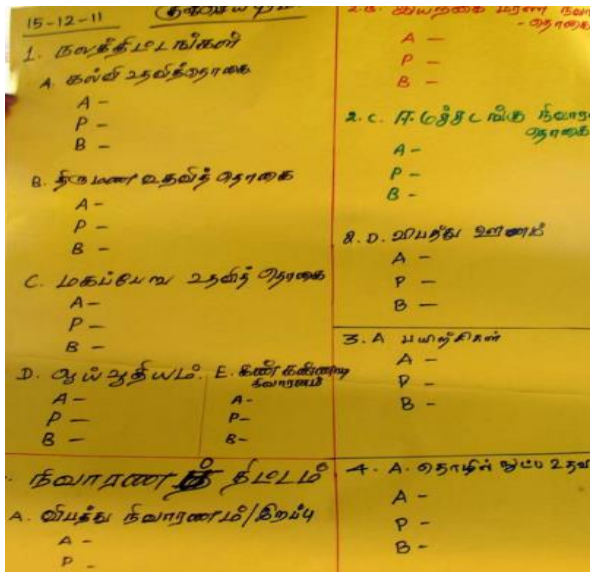 15-12-11
1. நலத்திட்டங்கள்
A. கல்வி உதவித்தொகை
A -
P -
B -
B. திருமண உதவித் தொகை
A -
P -
B -
C. மகப்பேறு உதவித் தொகை
A -
P -
B -
D. ஓய்வூதியம்
A -
P -
B -
E. கண் கண்ணாடி
நிவாரணம்
A -
P -
B -
நிவாரணத் திட்டம்
A. விபத்து நிவாரணம்/இறப்பு
A -
P -
2.B. இயற்கை மரண
- தொகை
A -
P -
B -
2.C. ஈமச்சடங்கு
தொகை
A -
P -
B -
2.D. விபத்து ஊனம்
A -
P -
B -
3.A பயிற்சிகள்
A -
P -
B -
4. A. தொழில் நுட்ப
A -
P -
B -